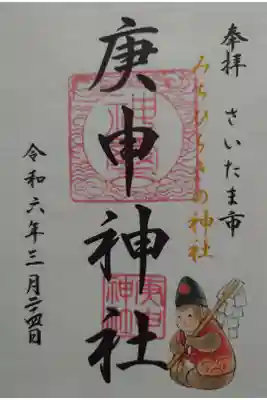 奉拝 さいたま市
みちひらきの神社
庚申神社
令和六年三月二十四日
庚申神社